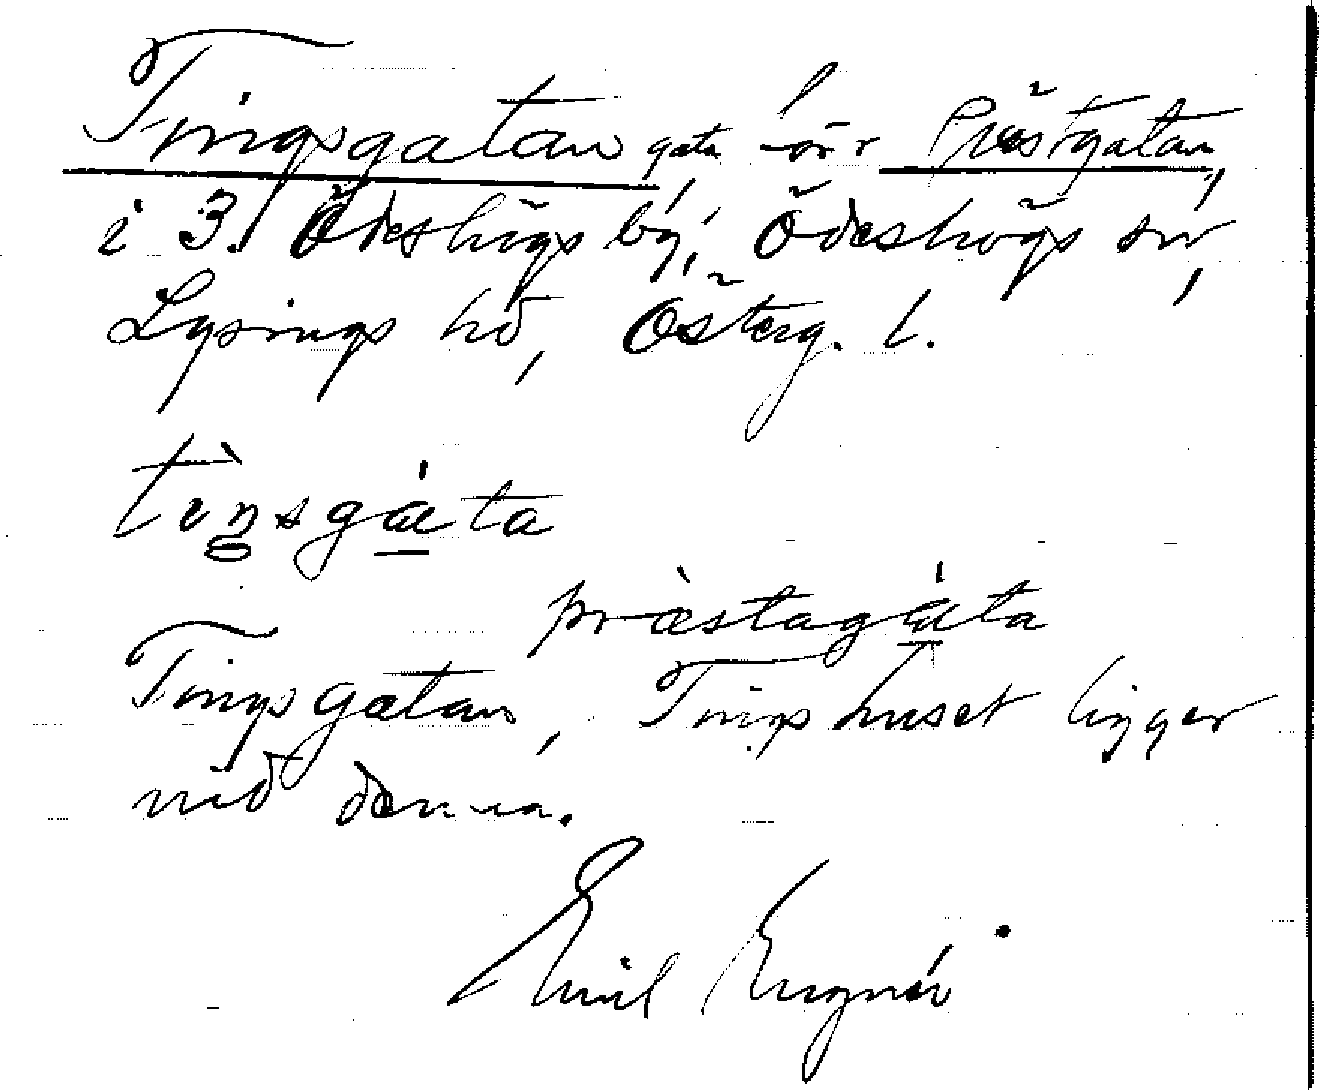 Tingsgatan gata förr Prästgatan,
i 3. Ödeshögs by, Ödeshögs sn,
Lysings hd, Österg. l.
tìŋsgáta
præ̀stagáta
Tingsgatan, Tingshuset ligger
vid denna.
Emil